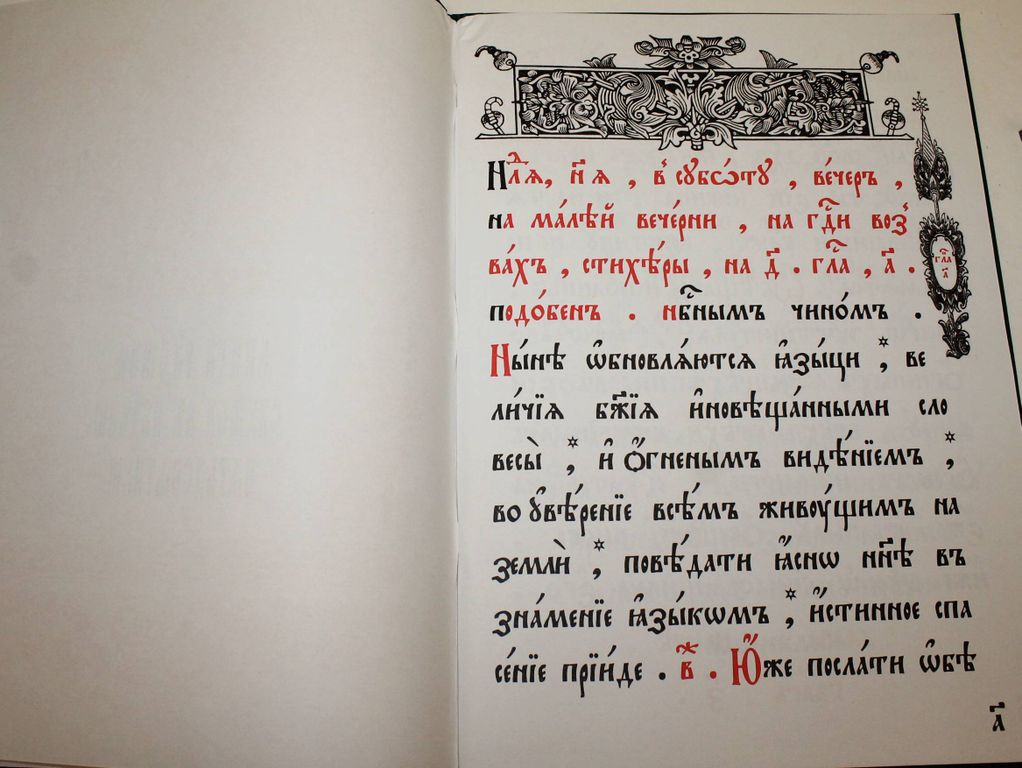 Нⷣлѧ, и҃ѧ , в сꙋбѡ́тꙋ , ве́черъ ,
на ма́лѣй вече́рни , на гдⷭ҇и воз̾
ва́хъ , стихѣ́ры , на д҃ . глⷭ҇а , а҃ .
подо́бенъ . нб҇нымъ чино́мъ .
Ны́нѣ ѡ҆бновлѧ́ютсѧ ꙗ҆зы́цы , ве
ли́чїѧ бж҃їѧ и҆новѣща́нными сло
весы̀ , и҆ ѻ҆́гненымъ видѣ́нїемъ ,
во ᲂу҆вѣ́ренїе всѣ́мъ живꙋ́щимъ на
землѝ , повѣ́дати ꙗ҆́снѡ нн҃ѣ въ
зна́менїе ꙗ҆зы́кѡмъ , и҆́стинное спа
се́нїе прїи́де . в҃ . Ю҆́же посла́ти ѡ҆бѣ
глⷭ҇а
а҃
а҃